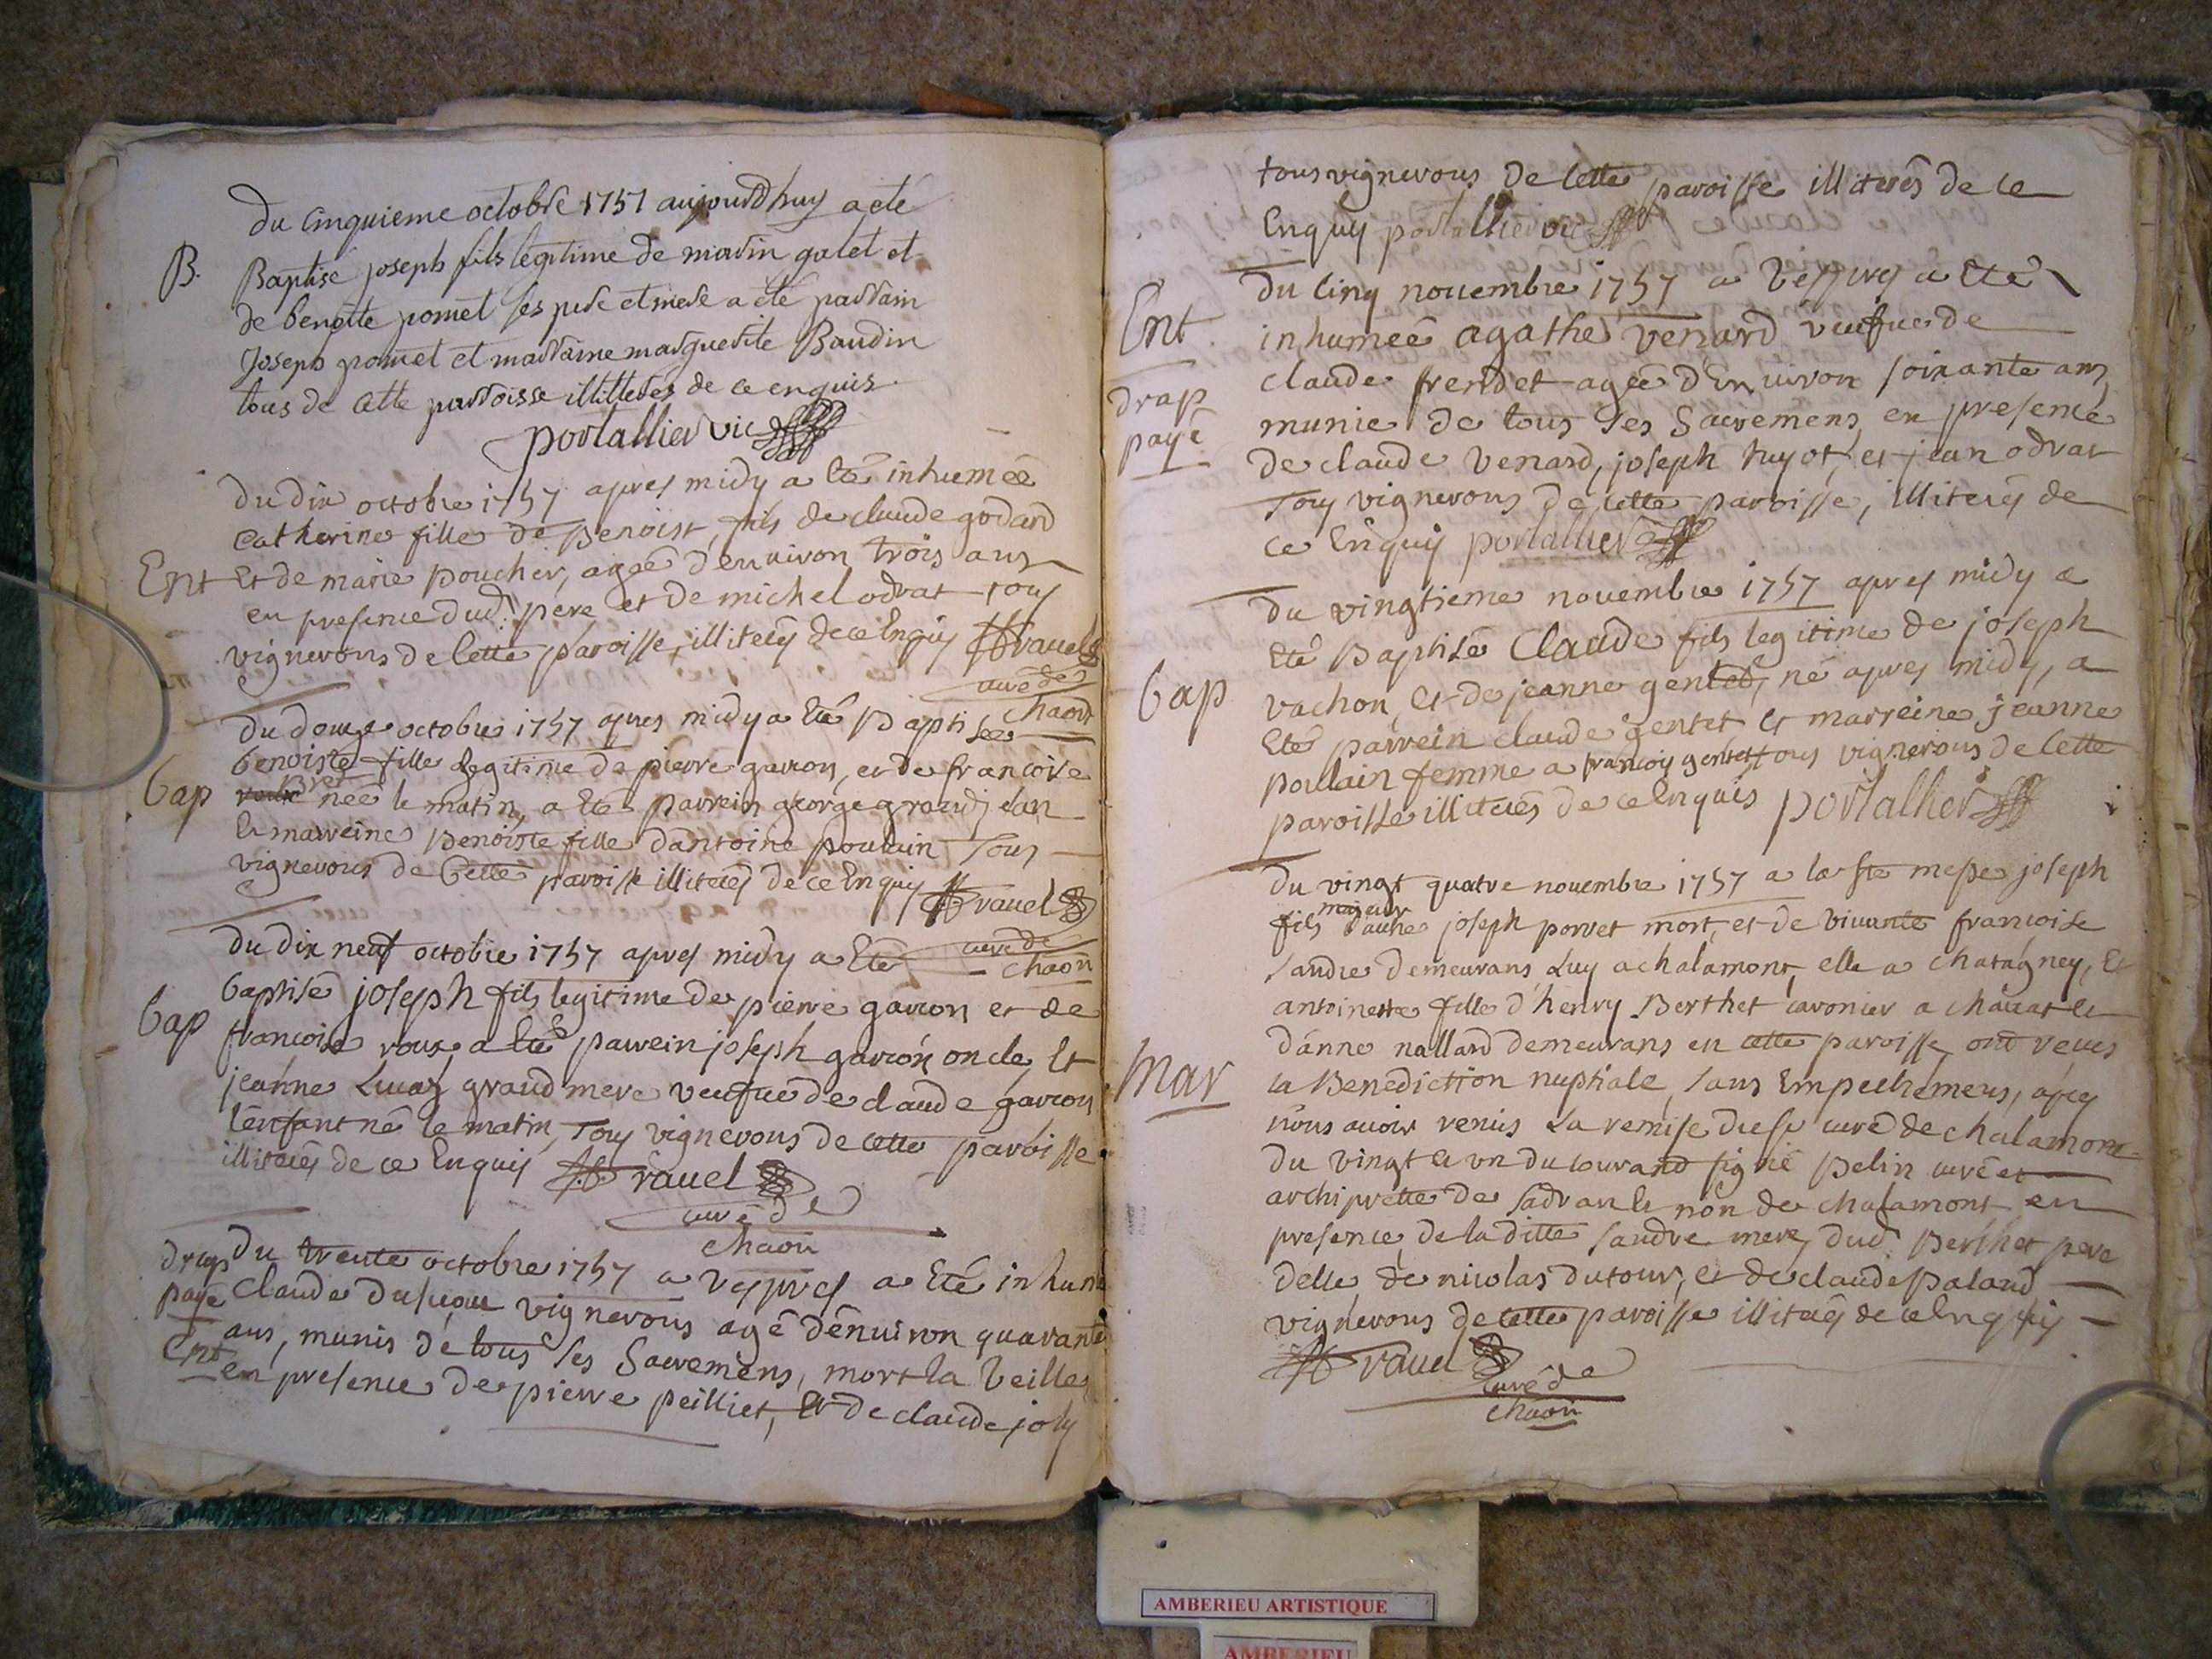 du cinquieme octobre 1757 aujourdhuy a eté
B. Baptisé joseph fils legitime de martin galet et
de benoitte pomel ses pere et mere a eté parrain
Joseph pomel et marraine marguerite Baudin
tous de cette parroisse illitterés de ce enquis.
portallier vic
du dix octobre 1757 apres midy a eté inhumeé
Catherine fille de Benoist, fils de claude godard
Ent Et de marie poucher, ageé d'enuiron trois ans
en presence dud. pere et de michel odrat tous
vignerons de Cette paroisse, illiterés de ce Enquis rauel
curé de
chaon
du douze octobre 1757 apres midy a Eté Baptisée
benoiste fille legitime de pierre garron, et de francoise
Bap neé le matin, a Eté parrein george grandjean
Et marreine Benoiste fille d'antoine poulain Tous
vignerons de Cette paroisse illiterés de ce Enquis rauel
curé de
chaon
du dix neuf octobre 1757 apres midy a Eté
Bap baptisé joseph fils legitime de pierre garron et de
francoise roux, a Eté parrein joseph garron oncle, Et
jeanne Lucas grand mere veufue de claude garron
l'enfant né le matin, Tous vignerons de cette paroisse
illiterés de ce Enquis rauel
curé de
chaon
drap du trente octobre 1757 a vespres a Eté inhumé
payé Claude vignerons agé d'enuiron quarante
Ent ans, munis de tous ses Sacremens, mort la veille
en presence de pierre peilliet, Et de claude joly
tous vignerons de Cette paroisse illiterés de ce
Enquis portallier vic
du cinq nouembre 1757 a Vespres a Eté
Ent inhumeé agathe venard veufue de
drap claude frendet ageé d'Enuiron soixante ans
payé munie de tous ses Sacremens, en presence
de claude Venard, joseph huyot, et jean odrat
Tous vignerons de Cette paroisse, illiterés de
ce Enquis portallier
du vingtieme nouembre 1757 apres midy a
Eté Baptisé Claude fils legitime de joseph
Bap vachon, Et de jeanne gentet, né apres midy, a
Eté parrein claude gentet Et marreine jeanne
poulain femme a francois gentet tous vignerons de Cette
paroisse illiterés de ce Enquis portallier
du vingt quatre nouembre 1757 a la ste messe joseph
majeur
fils d'autre joseph porret mort, et de viuante francoise
sandre demeurans Luy a chalamont, elle a chatagney, Et
antoinette fille d'henry Berthet a chauat et
d'anne nallard demeurans en cette paroisse, ont receus
Mar la Benediction nuptiale, sans Empechemens, apres
nous auoir remis La remise du sr curé de chalamont
du vingt et un du courand signé Pelin curé et
archipretre de de chalamont en
presence, de la ditte sandre mere, dud. Berthet pere
delle, de nicolas dutour, et de claude paland
vignerons de cette paroisse illiterés de ce Enquis
rauel
curé de
chaon
AMBERIEU ARTISTIQUE
AMBERIEU